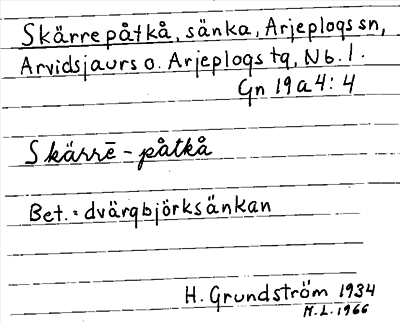 Skärrepåtkå, sänka, Arjeplogs sn,
Arvidsjaurs o. Arjeplogs tg, Nb. l.
Gn 19 a 4: 4
Skärrē - påtkå
Bet. = dvärgbjörksänkan
H. Grundström 1934
M.L. 1966